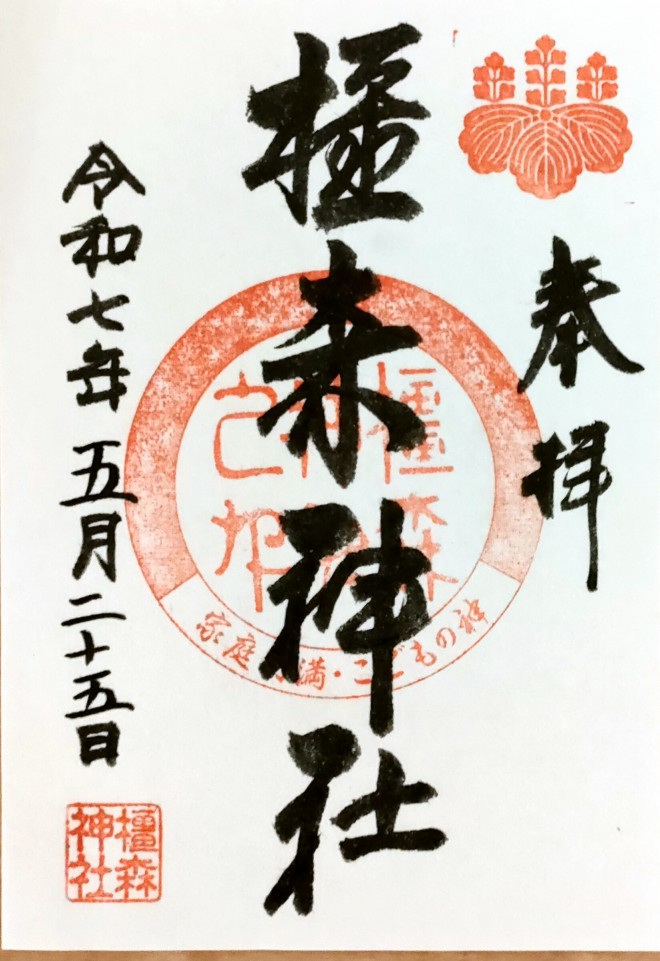 奉拝
橿森神社
家庭円満・こどもの神
令和七年五月二十五日
橿森
神社